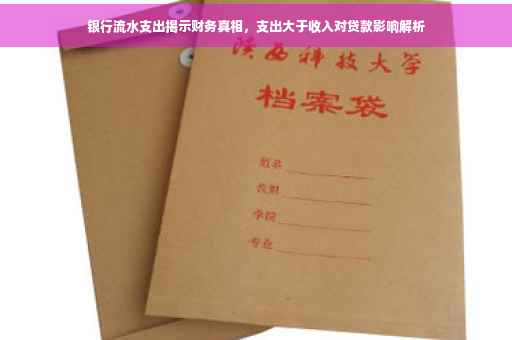 银行流水支出揭示财务真相，支出大于收入对贷款影响解析
陕西科技大学
档案袋
姓名
学院
专业